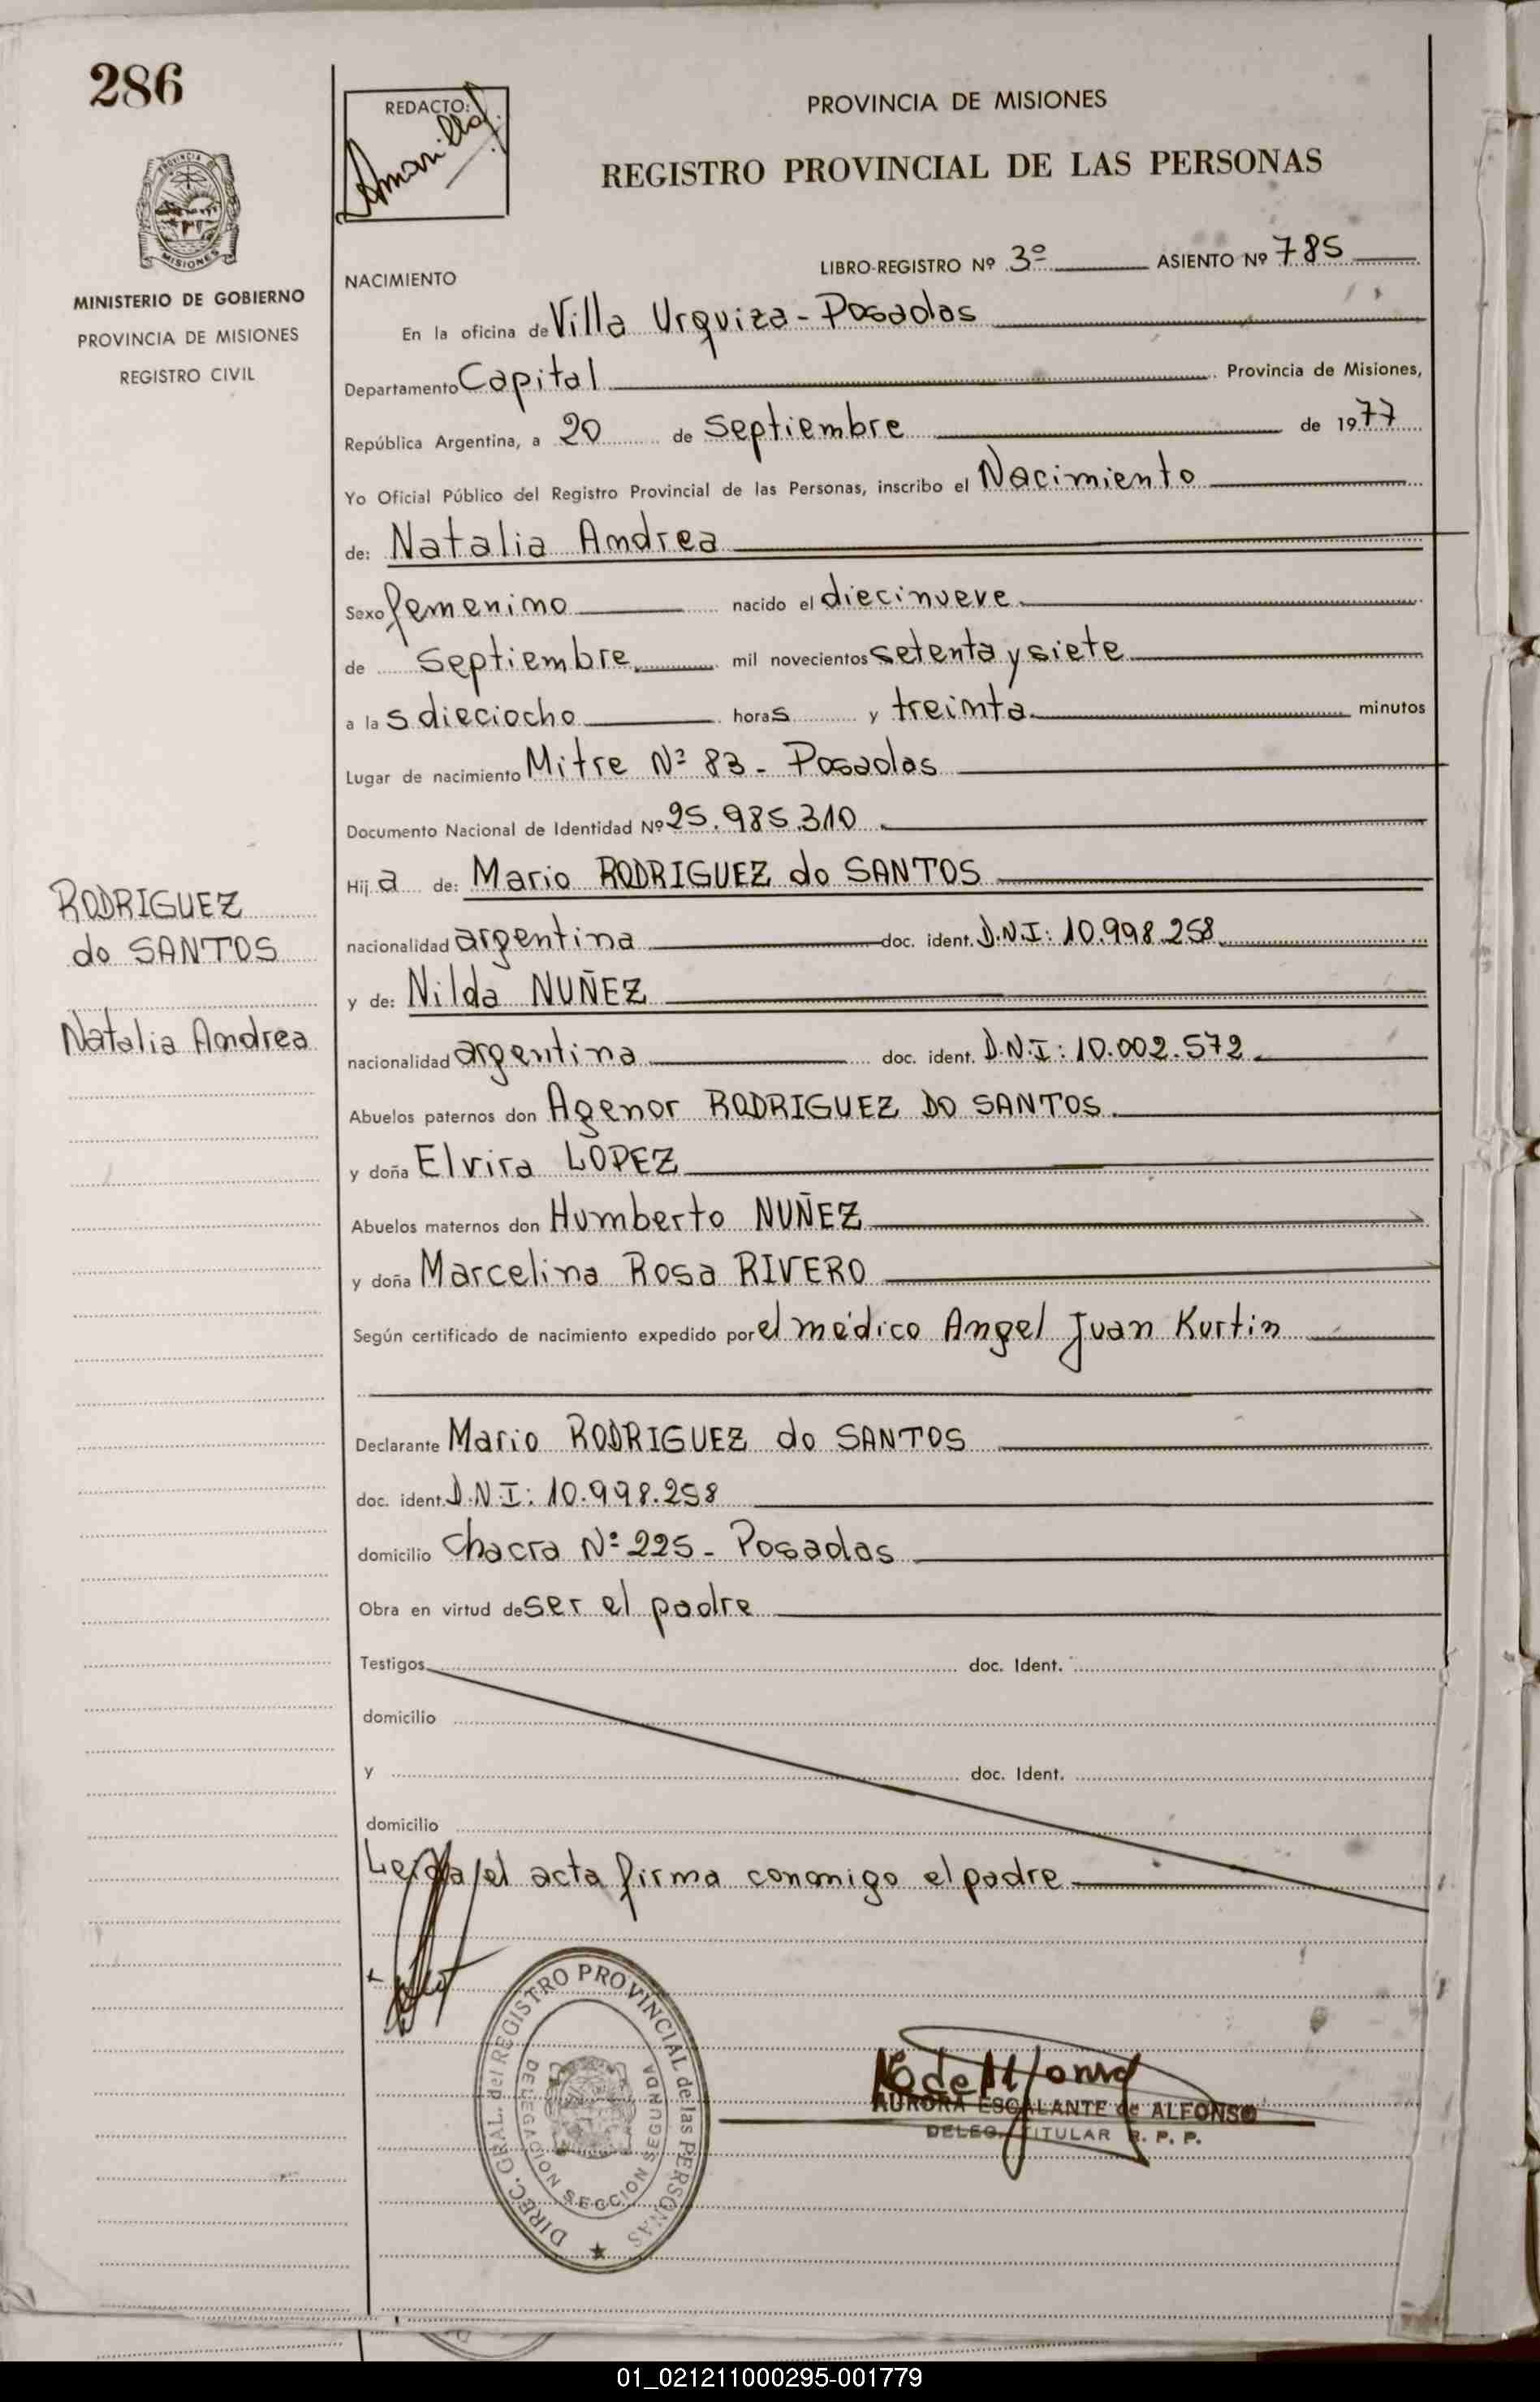 286
REDACTO:
Amarilla
PROVINCIA DE MISIONES
REGISTRO PROVINCIAL DE LAS PERSONAS
PROVINCIA DE
MISIONES
MINISTERIO DE GOBIERNO
PROVINCIA DE MISIONES
REGISTRO CIVIL
LIBRO-REGISTRO Nº 3º ASIENTO Nº 785
NACIMIENTO
En la oficina de Villa Urquiza - Posadas
Departamento Capital Provincia de Misiones,
República Argentina, a 20 de Septiembre de 1977
Yo Oficial Público del Registro Provincial de las Personas, inscribo el Nacimiento
de: Natalia Andrea
Sexo femenino nacido el diecinueve
de Septiembre mil novecientos setenta y siete
a las dieciocho horas y treinta minutos
Lugar de nacimiento Mitre Nº 83 - Posadas
Documento Nacional de Identidad Nº 25.985.310
Hija de: Mario RODRIGUEZ do SANTOS
RODRIGUEZ
do SANTOS
Natalia Andrea
nacionalidad argentina doc. ident. D.N.I: 10.998.258
y de: Nilda NUÑEZ
nacionalidad argentina doc. ident. D.N.I: 10.002.572
Abuelos paternos don Agenor RODRIGUEZ DO SANTOS
y doña Elvira LOPEZ
Abuelos maternos don Humberto NUÑEZ
y doña Marcelina Rosa RIVERO
Según certificado de nacimiento expedido por el médico Angel Juan Kurtin
Declarante Mario RODRIGUEZ do SANTOS
doc. ident. D.N.I: 10.998.258
domicilio Chacra Nº 225 - Posadas
Obra en virtud de ser el padre
Testigos doc. Ident.
domicilio
y doc. Ident.
domicilio
Leida el acta firma conmigo el padre
DIREC. GRAL. del REGISTRO PROVINCIAL de las PERSONAS
DELEGACION SECCION SEGUNDA
AURORA ESCALANTE de ALFONSO
DELEG. TITULAR R. P. P.
01_021211000295-001779